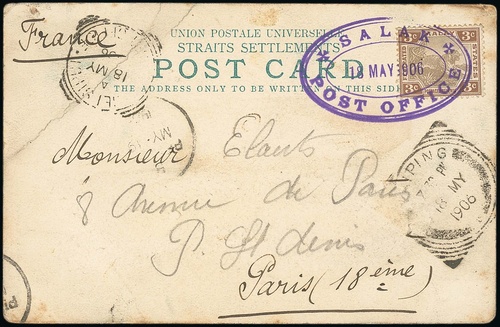 France
UNION POSTALE UNIVERSELLE
STRAITS SETTLEMENTS
POST CARD
THE ADDRESS ONLY TO BE WRITTEN ON THIS SIDE
SALAK
18 MAY 1906
POST OFFICE
3c 3c
18 MY
PING
18 MY
1906
MY
Monsieur
8 Avenue de Paris
P. St denis
Paris (18ème)